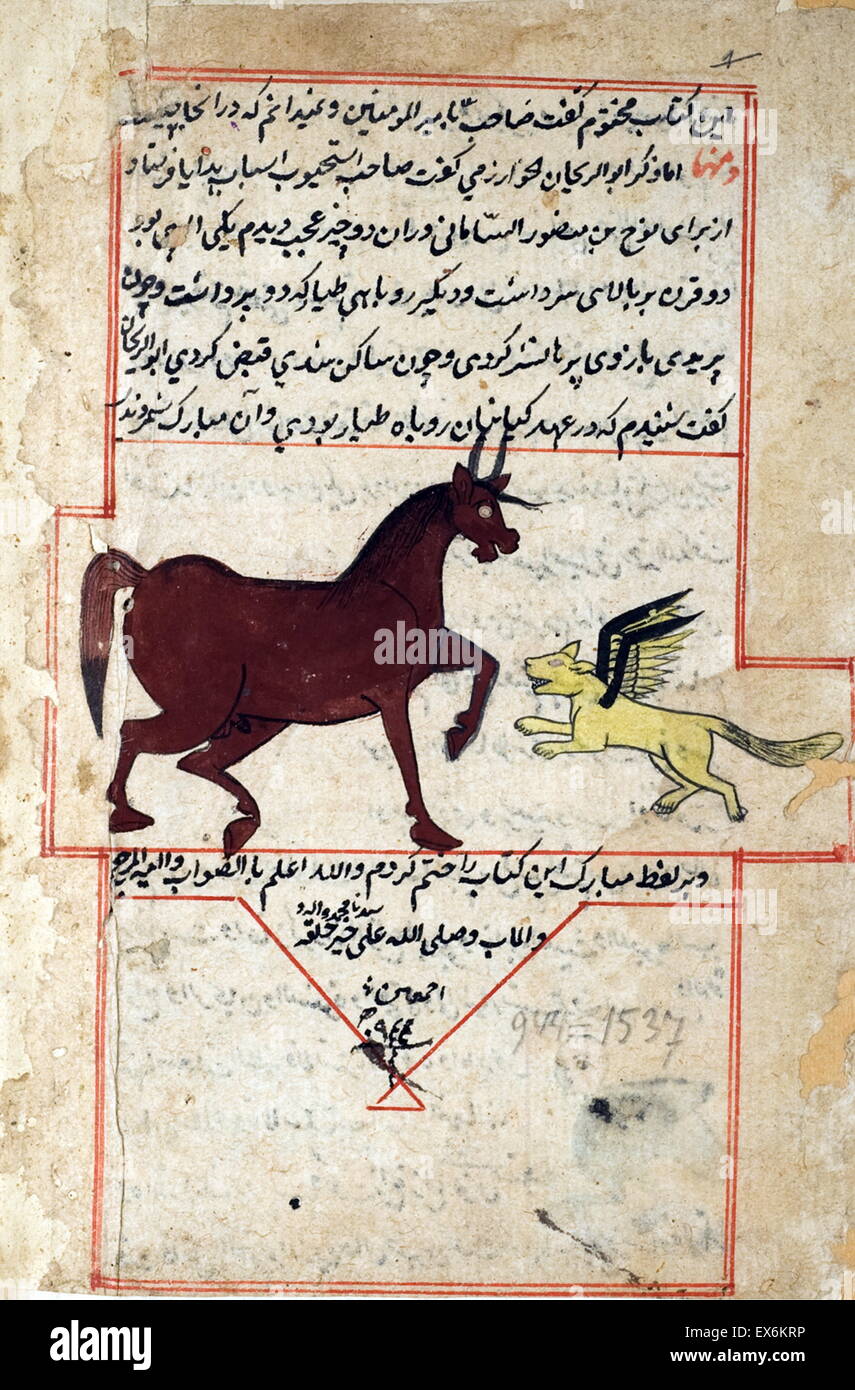 این کتاب مختوم گفت صاحب تا بیر المومنین و نمیدانم که در انجا
ومنها اما ذکر ابو الریحان الخوارزمی گفت صاحب اسباب هدایا فرستاد
از برای نوح بن منصور السامانی دران دو چیز عجب دیدم یکی اسپی بود
دو قرن بر بالای سر داشت و دیگیر روباهی طیار که دو پر داشت و چون
بازوی پرها نشر کردی و چون ساکن شدی قبض کردی ابو الریحان
گفت شنیدم که در عهد کیانیان روباه طیار بودی و آن مبارک شمردندی
alamy
و بر لفظ مبارک این کتاب را ختم کردم والله اعلم با الصواب والیه المرجع
سیدنا محمد واله و
والماب وصلی الله علی خیر خلقه
اجمعین
٩٤٤
944 = 1537
alamy
Image ID: EX6KRP
www.alamy.com